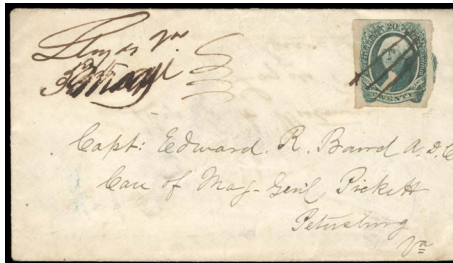 Lloyds Va
20
Capt: Edward. R. Baird A.D.C
Care of Maj-Genl, Pickett
Petersburg
Va